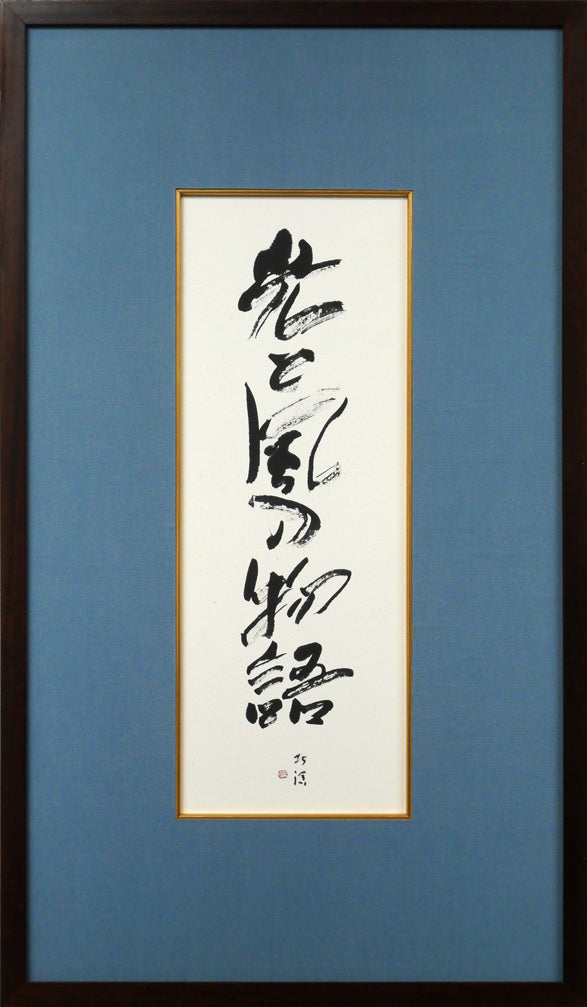 光と風の物語